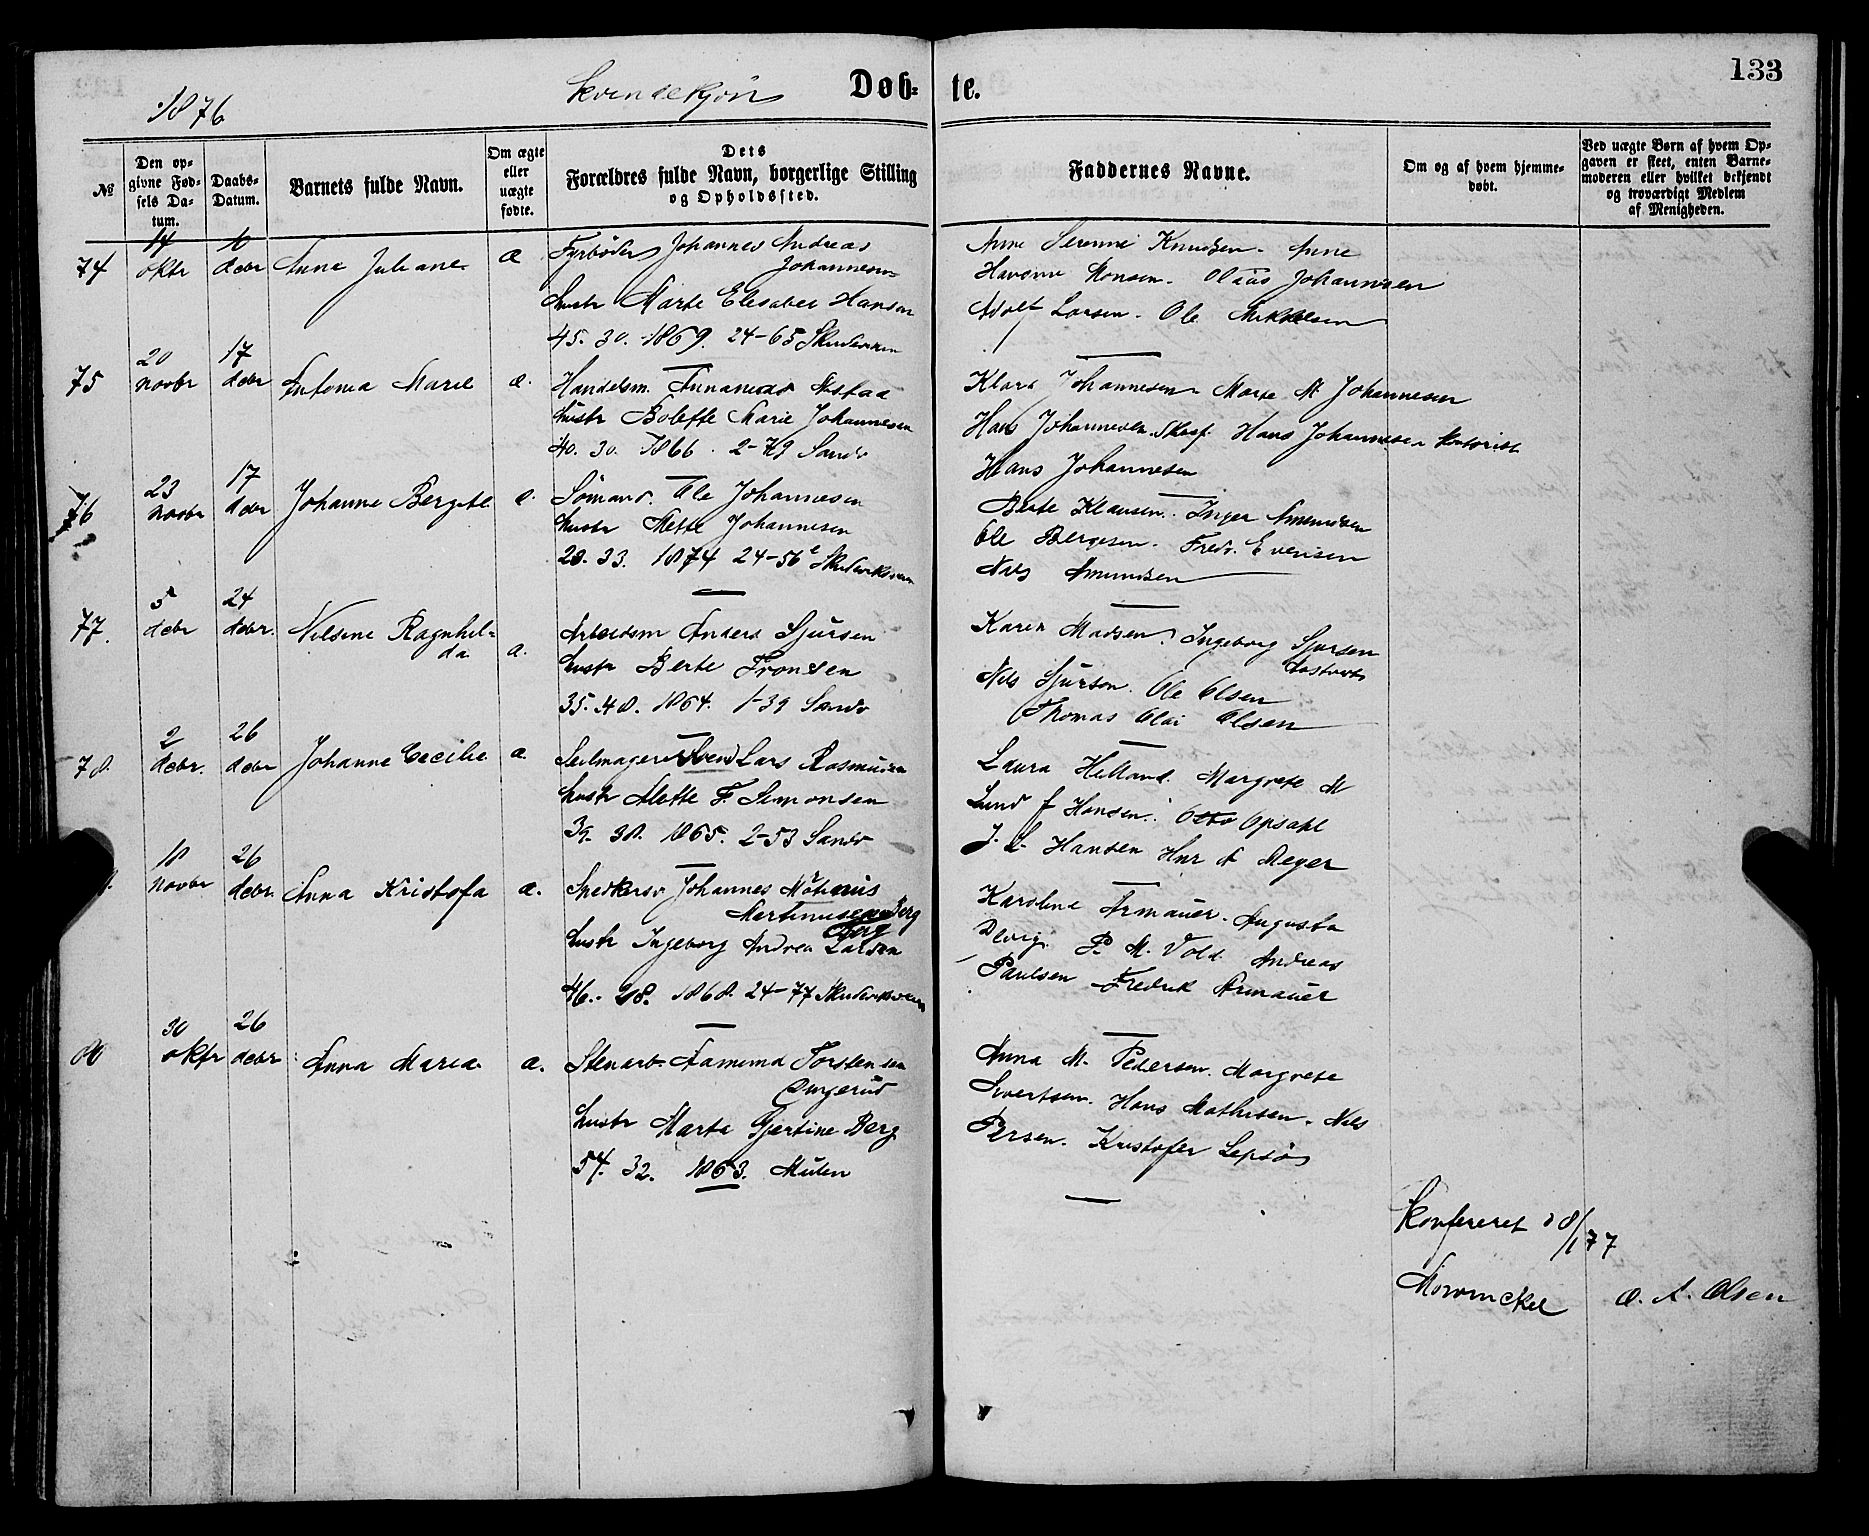 133
1876 Kvindekjøn Døb- te.
№
Den op-
givne Fød-
sels Da-
tum.
Daabs-
Datum.
Barnets fulde Navn.
Om ægte
eller
uægte
fødte.
Dets
Forældres fulde Navn, borgerlige Stilling
og Opholdssted.
Faddernes Navne.
Om og af hvem hjemme-
døbt.
Ved uægte Børn af hvem Op-
gaven er skeet, enten Barne-
moderen eller hvilket bekjendt
og troværdigt Medlem
af Menigheden.
74
14
oktr
10
debr
Anne Juliane
æ
Fyrbøder Johannes Andreas
Johannesen
hustr Marte Elisabet Hansen
45. 30. 1869. 24-65 Skuteviken
Anne Serine Knudsen. Anne
Monsen. Olaus Johannesen
Adolf Larsen. Ole Mikkelsen
75
20
novbr
17
debr
Antonia Marie
æ.
Handelsm.
hustr Bolette Marie Johannesen
40. 30. 1866. 2-79 Sandv
Klara Johannesen Marte M Johannesen
Hans Johannesen Skasf. Hans Johannesen Kontorist
Hans Johannesen
76
23
novbr
17
debr
Johanne Bergite
æ.
Sømand. Ole Johannesen
hustr Mette Johannesen
28. 33. 1874 24-56 Skuteviksveien
Berte Klausen. Inger Amundsen
Ole Bergesen. Fredr. Evensen
Nils Amundsen
77.
5
debr
24
debr.
Nilsine Ragnhil-
da
æ.
Arbeidsm Anders Sjursen
hustr Berte Tronsen
35. 40. 1864. 1-39 Sandv
Karen Madsen. Ingeborg Sjursen
Nils Sjursen. Ole Olsen
Thomas Olai Olsen
78.
2
debr.
26
debr
Johanne Cecilie
æ.
Seilmagersvend Lars Rasmusen
hustr Mette F. Simonsen
39. 38. 1865. 2-53 Sandv
Laura Helland. Margrete M
Lund f Hansen. Otto Opsahl
J. L. Hansen Hnr A Meyer
18
novbr
26
debr.
Anna Kristofa
æ.
Snedkersv Johannes
Martinusen Berg
hustr Ingeborg Andrea Larsen
46. 28. 1868. 24-77 Skuteviksveien
Karoline Armauer. Augusta
P. M. Vold. Andreas
Paulsen Fredrik Armauer
80
30
oktr
26
debr
Anna Maria
æ.
Stenarb. Torstensen
hustr Marta Gjertine Berg
54. 32. 1863. Mulen
Anna M. Pedersen. Margrete
Sivertsen. Hans Mathisen. Nils
Persen. Kristofer Lepsø
Konfereret 18/1 77
Mowinckel O. A. Olsen